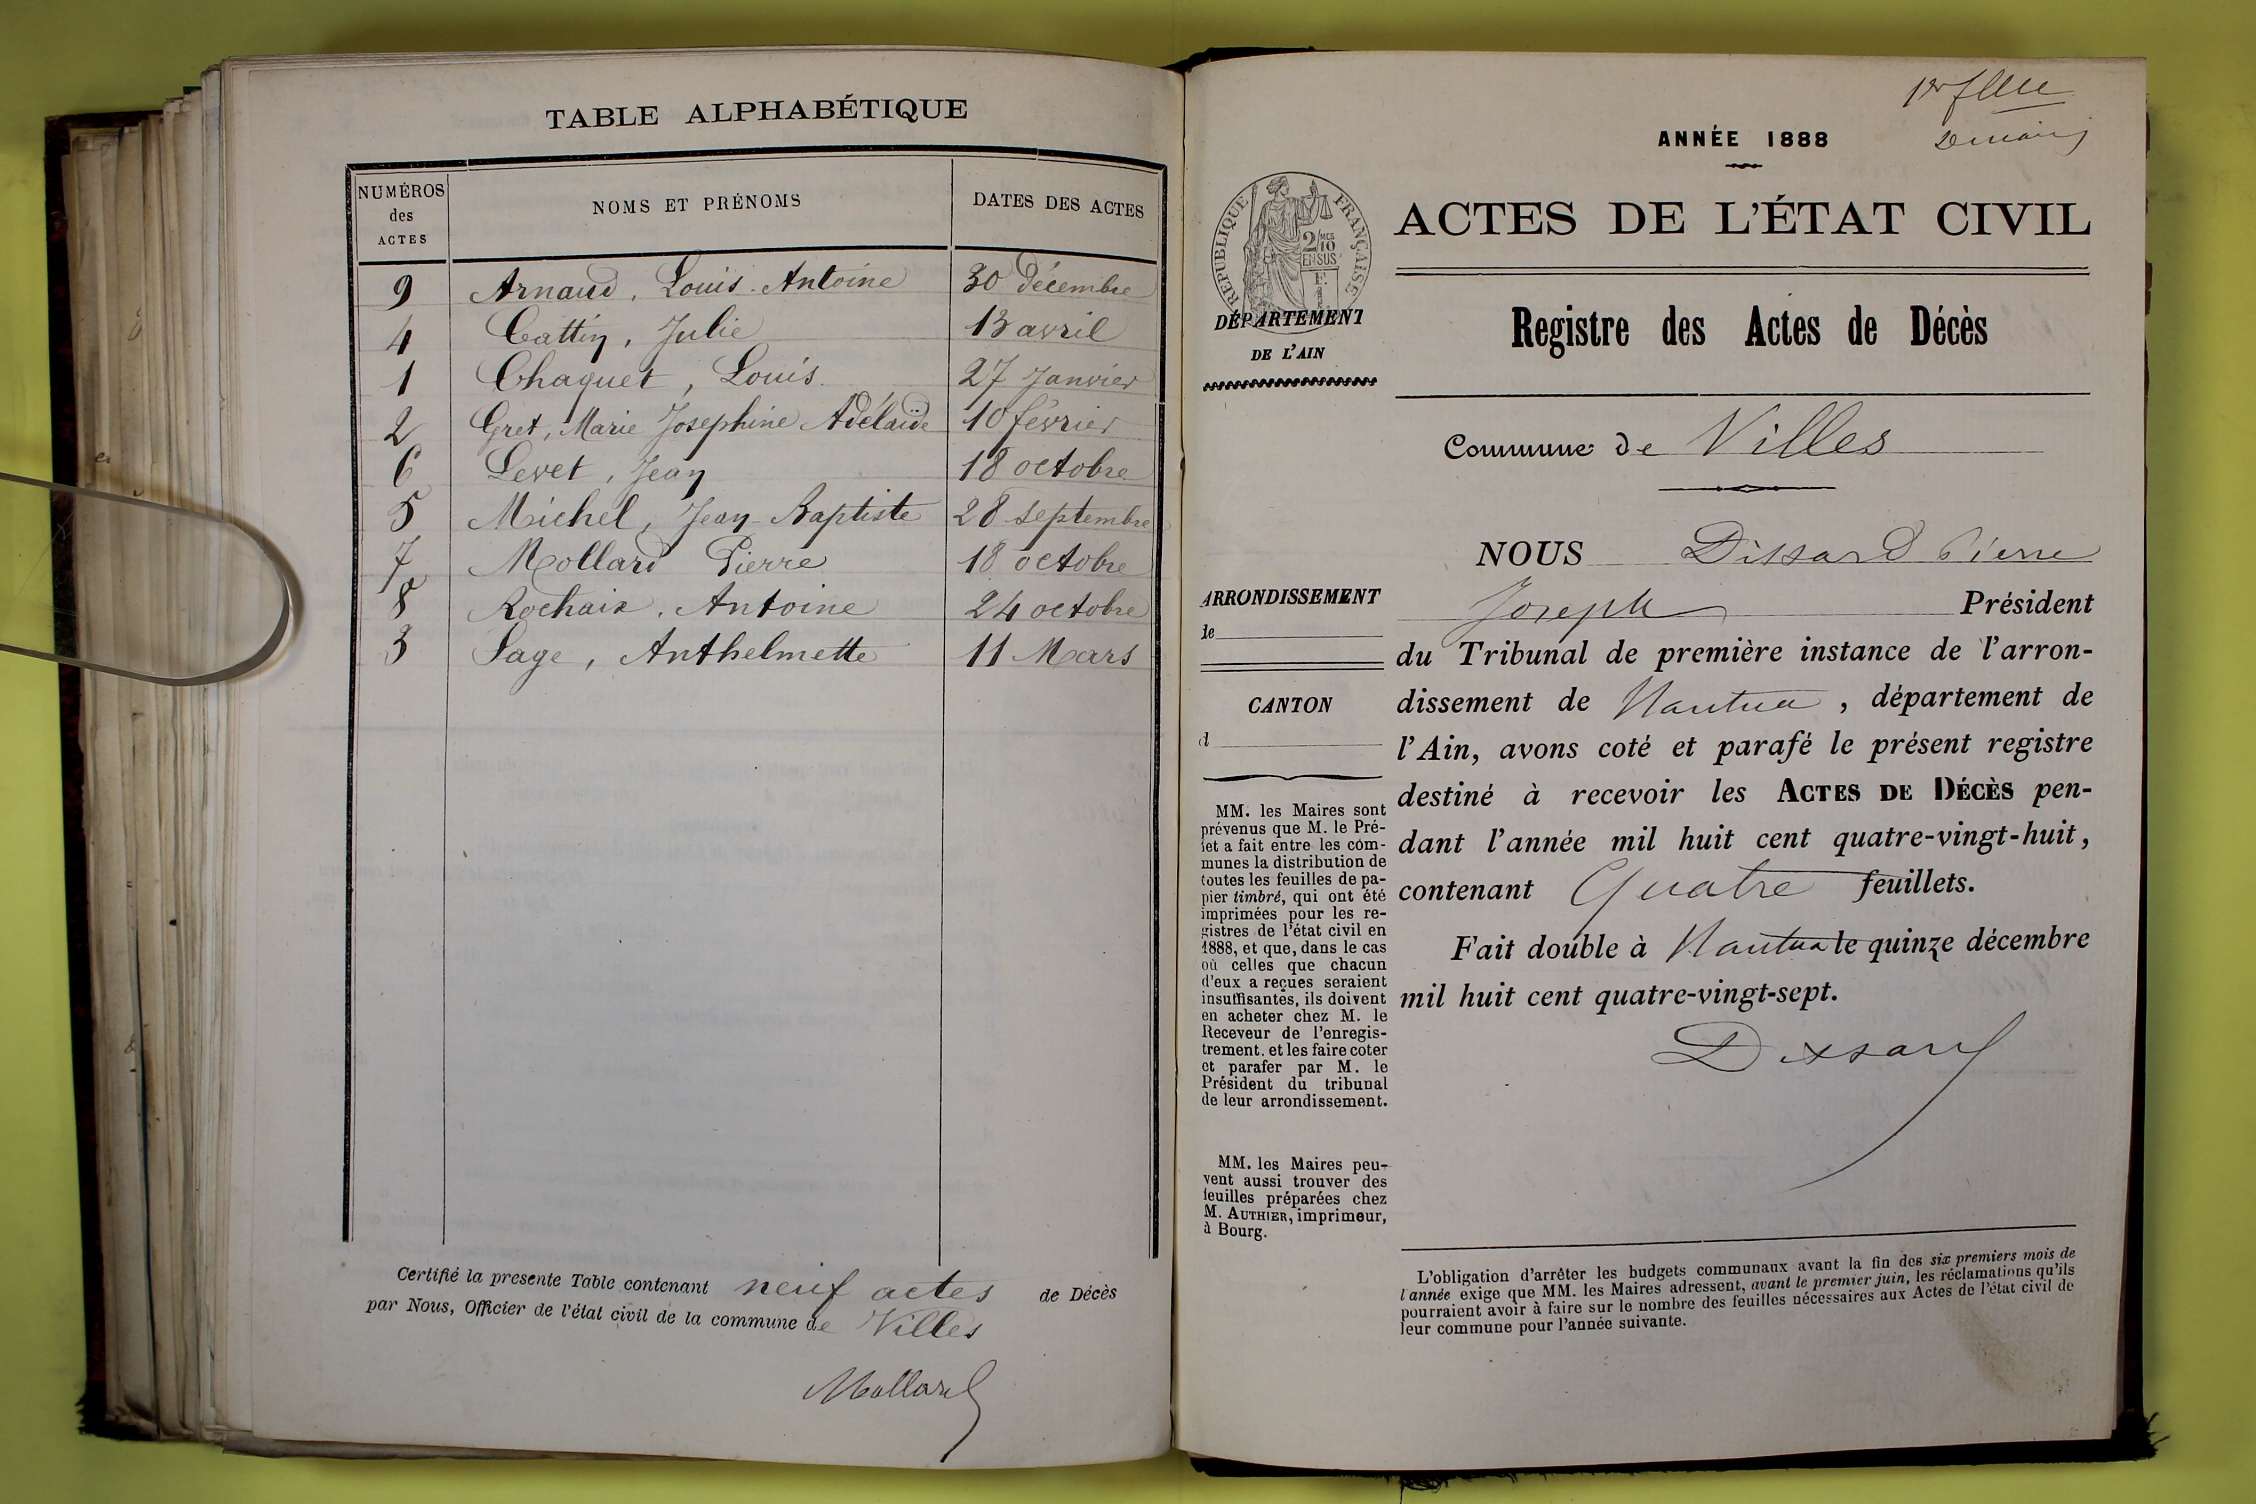 TABLE ALPHABÉTIQUE
NUMÉROS des ACTES NOMS ET PRÉNOMS DATES DES ACTES
9 Arnaud, Louis-Antoine 30 décembre
4 Cattin, Julie 13 avril
1 Chaquet, Louis 27 Janvier
2 Gret, Marie Josephine Adélaïde 10 février
6 Levet, Jean 18 octobre
5 Michel, Jean-Baptiste 28 septembre
7 Mollard Pierre 18 octobre
8 Rochaix, Antoine 24 octobre
3 Sage, Anthelmette 11 Mars
Certifié la presente Table contenant neuf actes de Décès
par Nous, Officier de l'état civil de la commune de Villes
Mollard
ANNÉE 1888
RÉPUBLIQUE FRANÇAISE
2/10
EN SUS
ACTES DE L'ÉTAT CIVIL
DÉPARTEMENT
DE L'AIN
Registre des Actes de Décès
Commune de Villes
ARRONDISSEMENT
de
CANTON
d
MM. les Maires sont
prévenus que M. le Pré-
fet a fait entre les com-
munes la distribution de
toutes les feuilles de pa-
pier timbré, qui ont été
imprimées pour les re-
gistres de l'état civil en
1888, et que, dans le cas
où celles que chacun
d'eux a reçues seraient
insuffisantes, ils doivent
en acheter chez M. le
Receveur de l'enregis-
trement. et les faire coter
et parafer par M. le
Président du tribunal
de leur arrondissement.
MM. les Maires peu-
vent aussi trouver des
feuilles préparées chez
M. AUTHIER, imprimeur,
à Bourg.
NOUS Dissard Pierre
Joseph Président
du Tribunal de première instance de l'arron-
dissement de Nantua, département de
l'Ain, avons coté et parafé le présent registre
destiné à recevoir les ACTES DE DÉCÈS pen-
dant l'année mil huit cent quatre-vingt-huit,
contenant Quatre feuillets.
Fait double à Nantua le quinze décembre
mil huit cent quatre-vingt-sept.
Dissard
L'obligation d'arrêter les budgets communaux avant la fin des six premiers mois de
l'année exige que MM. les Maires adressent, avant le premier juin, les réclamations qu'ils
pourraient avoir à faire sur le nombre des feuilles nécessaires aux Actes de l'état civil de
leur commune pour l'année suivante.